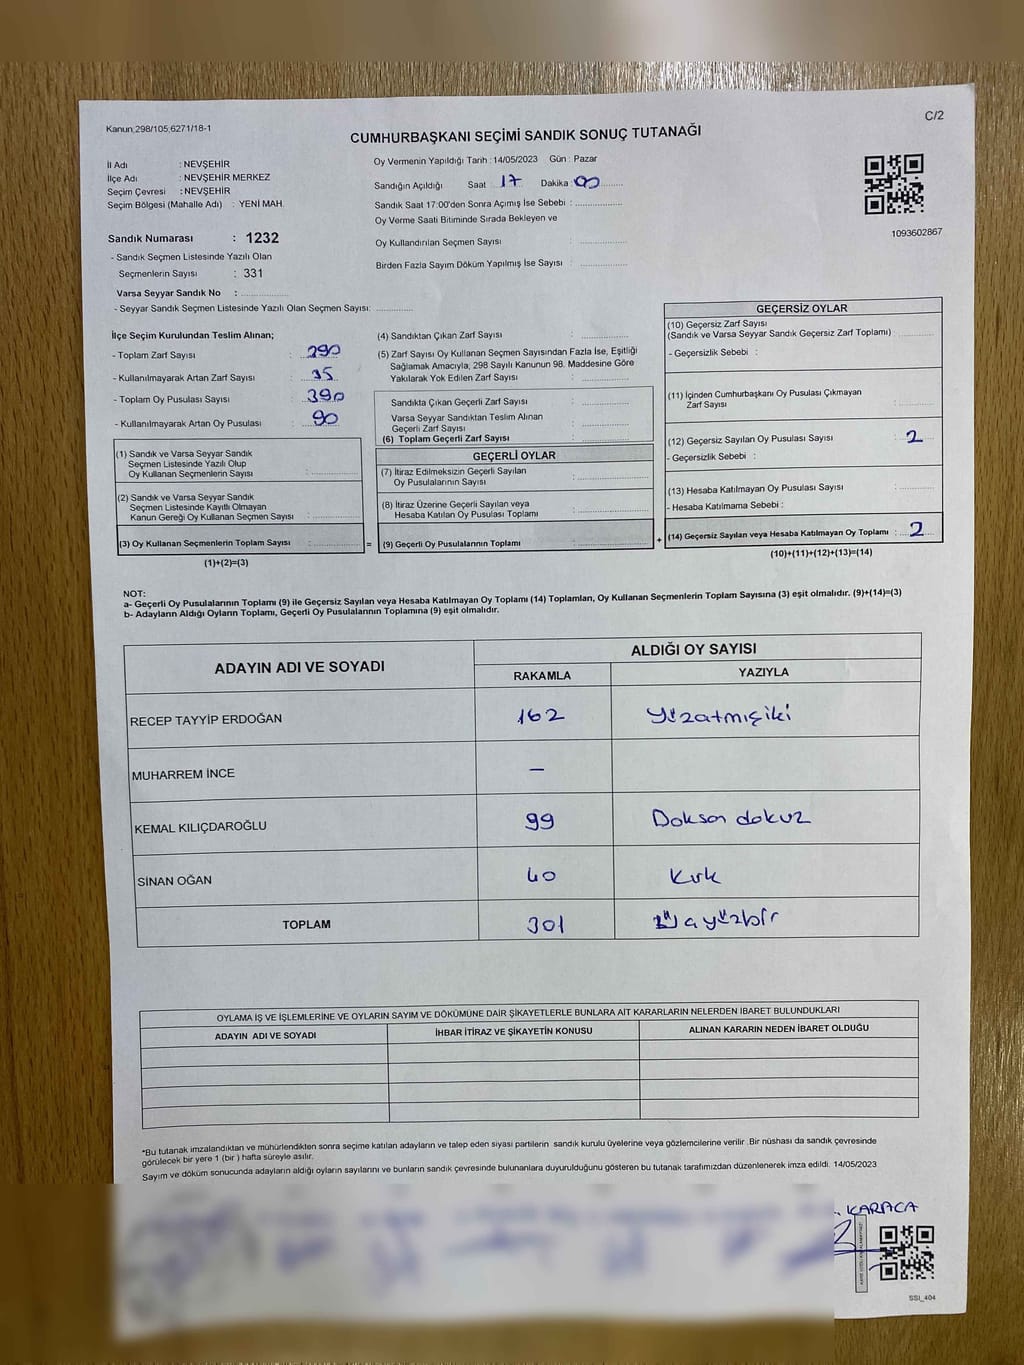 Kanun,298/105,6271/18-1
C/2
CUMHURBAŞKANI SEÇİMİ SANDIK SONUÇ TUTANAĞI
İl Adı : NEVŞEHİR
İlçe Adı : NEVŞEHİR MERKEZ
Seçim Çevresi : NEVŞEHİR
Seçim Bölgesi (Mahalle Adı) : YENİ MAH.
Sandık Numarası : 1232
- Sandık Seçmen Listesinde Yazılı Olan
Seçmenlerin Sayısı : 331
Varsa Seyyar Sandık No :
- Seyyar Sandık Seçmen Listesinde Yazılı Olan Seçmen Sayısı:
Oy Vermenin Yapıldığı Tarih : 14/05/2023 Gün : Pazar
Sandığın Açıldığı Saat : 17 Dakika : 00
Sandık Saat 17:00'den Sonra Açımış İse Sebebi :
Oy Verme Saati Bitiminde Sırada Bekleyen ve
Oy Kullandırılan Seçmen Sayısı :
Birden Fazla Sayım Döküm Yapılmış İse Sayısı :
1093602867
İlçe Seçim Kurulundan Teslim Alınan;
- Toplam Zarf Sayısı : 390
- Kullanılmayarak Artan Zarf Sayısı : 35
- Toplam Oy Pusulası Sayısı : 390
- Kullanılmayarak Artan Oy Pusulası : 90
(1) Sandık ve Varsa Seyyar Sandık
Seçmen Listesinde Yazılı Olup
Oy Kullanan Seçmenlerin Sayısı :
(2) Sandık ve Varsa Seyyar Sandık
Seçmen Listesinde Kayıtlı Olmayan
Kanun Gereği Oy Kullanan Seçmen Sayısı :
(3) Oy Kullanan Seçmenlerin Toplam Sayısı :
(1)+(2)=(3)
(4) Sandıktan Çıkan Zarf Sayısı :
(5) Zarf Sayısı Oy Kullanan Seçmen Sayısından Fazla İse, Eşitliği
Sağlamak Amacıyla, 298 Sayılı Kanunun 98. Maddesine Göre
Yakılarak Yok Edilen Zarf Sayısı :
Sandıkta Çıkan Geçerli Zarf Sayısı :
Varsa Seyyar Sandıktan Teslim Alınan
Geçerli Zarf Sayısı :
(6) Toplam Geçerli Zarf Sayısı :
=
GEÇERLİ OYLAR
(7) İtiraz Edilmeksizin Geçerli Sayılan
Oy Pusulalarının Sayısı :
(8) İtiraz Üzerine Geçerli Sayılan veya
Hesaba Katılan Oy Pusulası Toplamı :
(9) Geçerli Oy Pusulalarının Toplamı :
+
GEÇERSİZ OYLAR
(10) Geçersiz Zarf Sayısı
(Sandık ve Varsa Seyyar Sandık Geçersiz Zarf Toplamı) :
- Geçersizlik Sebebi :
(11) İçinden Cumhurbaşkanı Oy Pusulası Çıkmayan
Zarf Sayısı :
(12) Geçersiz Sayılan Oy Pusulası Sayısı : 2
- Geçersizlik Sebebi :
(13) Hesaba Katılmayan Oy Pusulası Sayısı :
- Hesaba Katılmama Sebebi :
(14) Geçersiz Sayılan veya Hesaba Katılmayan Oy Toplamı : 2
(10)+(11)+(12)+(13)=(14)
NOT:
a- Geçerli Oy Pusulalarının Toplamı (9) ile Geçersiz Sayılan veya Hesaba Katılmayan Oy Toplamı (14) Toplamları, Oy Kullanan Seçmenlerin Toplam Sayısına (3) eşit olmalıdır. (9)+(14)=(3)
b- Adayların Aldığı Oyların Toplamı, Geçerli Oy Pusulalarının Toplamına (9) eşit olmalıdır.
ADAYIN ADI VE SOYADI
ALDIĞI OY SAYISI
RAKAMLA YAZIYLA
RECEP TAYYİP ERDOĞAN 162 Yüzatmışiki
MUHARREM İNCE –
KEMAL KILIÇDAROĞLU 99 Doksan dokuz
SİNAN OĞAN 40 Kırk
TOPLAM 301 Üçyüzbir
OYLAMA İŞ VE İŞLEMLERİNE VE OYLARIN SAYIM VE DÖKÜMÜNE DAİR ŞİKAYETLERLE BUNLARA AİT KARARLARIN NELERDEN İBARET BULUNDUKLARI
ADAYIN ADI VE SOYADI İHBAR İTİRAZ VE ŞİKAYETİN KONUSU ALINAN KARARIN NEDEN İBARET OLDUĞU
*Bu tutanak imzalandıktan ve mühürlendikten sonra seçime katılan adayların ve talep eden siyasi partilerin sandık kurulu üyelerine veya gözlemcilerine verilir .Bir nüshası da sandık çevresinde
görülecek bir yere 1 (bir ) hafta süreyle asılır.
Sayım ve döküm sonucunda adayların aldığı oyların sayılarını ve bunların sandık çevresinde bulunanlara duyurulduğunu gösteren bu tutanak tarafımızdan düzenlenerek imza edildi. 14/05/2023
KARACA
SSI_404